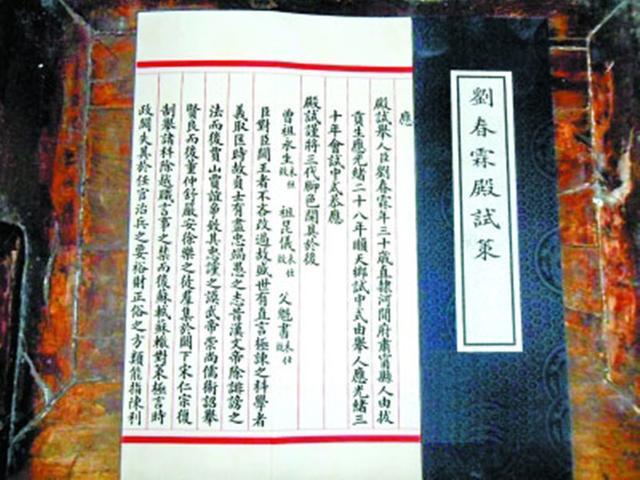 劉春霖殿試策
應
殿試舉人臣劉春霖年三十歲直隸河間府肅寧縣人由拔
貢生應光緒二十八年順天鄉試中式由舉人應光緒三
十年會試中式恭應
殿試謹將三代腳色開具於後
曾祖永生未仕故 祖昆儀未仕故 父魁書未仕故
臣對臣聞王者不吝改過故盛世有直言極諫之科學者
義取匡時故貢士有盡忠竭愚之志昔漢文帝除誹謗之
法而後賈山賈誼爭致其忠謹之謨武帝崇尚儒術詔舉
賢良而後董仲舒嚴安徐樂之徒羣集於闕下宋仁宗復
制舉諸科除越職言事之禁而後蘇軾蘇轍對策極言時
政闕失其於任官治兵之要裕財正俗之方類能指陳利